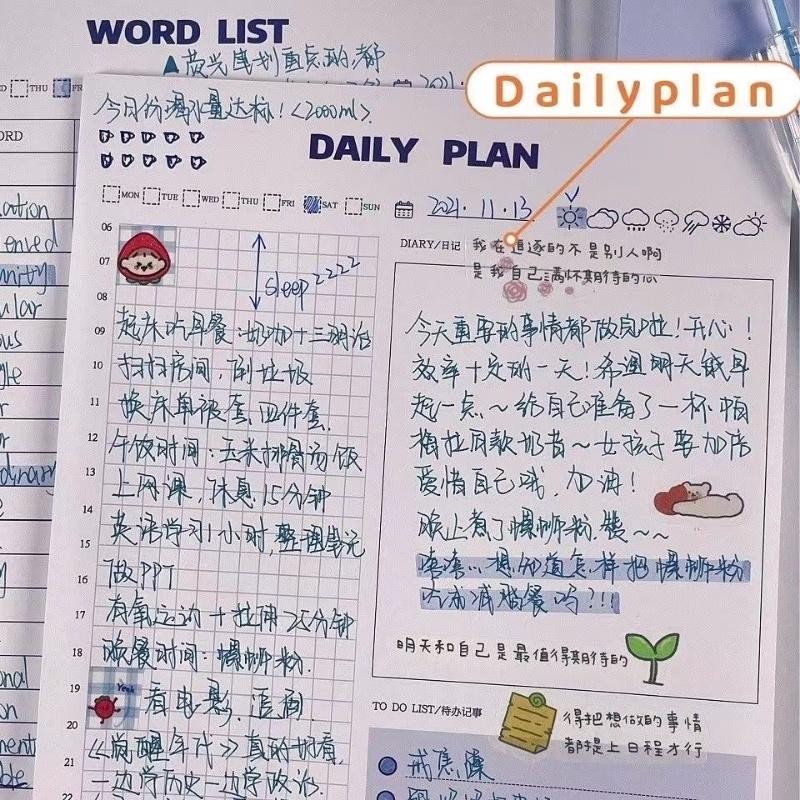 WORD LIST
▲荧光笔划重点的都
THU
ORD
ation
ular
Dailyplan
今日份喝水量达标！<2000ml>.
DAILY PLAN
MON TUE WED THU FRI SAT SUN
2021.11.13
06
07
08
sleep zzzz
09
起床吃早餐：奶咖+三明治
10
扫扫房间，倒垃圾
11
换床单被套.四件套.
12
午饭时间：玉米排骨汤饭
13
上网课，休息15分钟
14
15
英语学习1小时,整理笔记
16
做PPT
17
有氧运动+拉伸25分钟
18
晚餐时间：螺蛳粉.
19
Yeah
看电影，追剧
20
《觉醒年代》真的好看，
21
一边学历史一边学政治.
22
DIARY/日记
我在追逐的不是别人啊
是我自己满怀期待的心
今天重要的事情都做完啦！开心！
效率十足的一天！希望明天能早
起一点～给自己准备了一杯帕
梅拉同款奶昔～女孩子要加倍
爱惜自己哦，加油！
晚上煮了螺蛳粉.馋～～
嘻嘻…想知道怎样把螺蛳粉
吃成减脂餐吗?!!!
明天和自己是最值得期待的
TO DO LIST/待办记事
得把想做的事情
都提上日程才行
戒焦虑